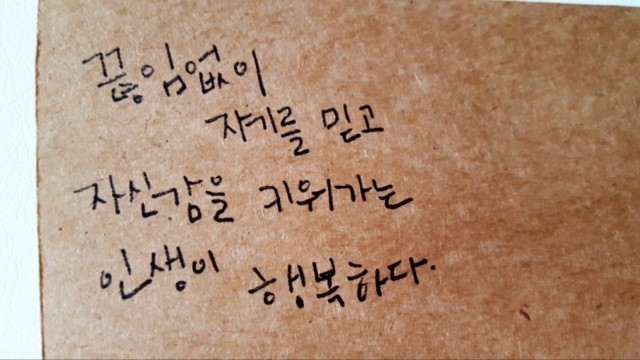 끊임없이
자기를 믿고
자신감을 키워가는
인생이 행복하다.